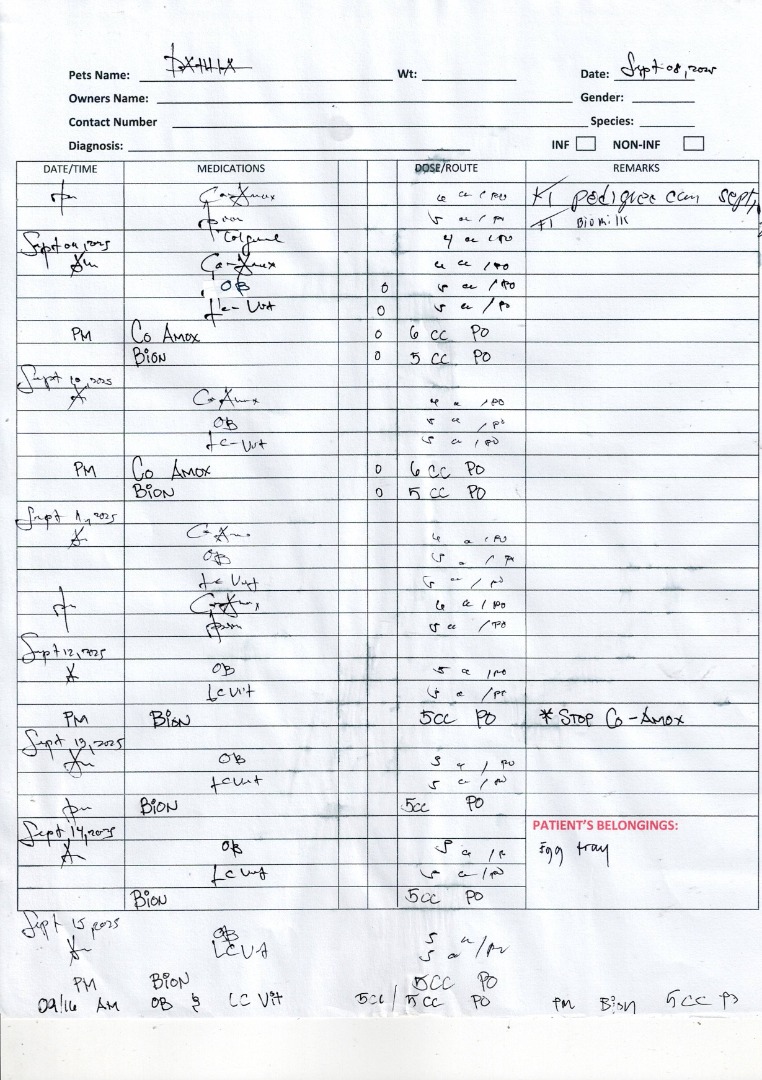 Pets Name: Wt: Date: Sept 08, 2025
Owners Name: Gender:
Contact Number Species:
Diagnosis: INF NON-INF
DATE/TIME MEDICATIONS DOSE/ROUTE REMARKS
pm Co-Amox cc / PO #1 pedigree can sept,
5 cc / PO #1 Biomilk
Colgene 4 cc / PO
Sept 09, 2025
Am Co-Amox cc / PO
OB 0 5 cc / PO
LC-Vit 0 5 cc / PO
PM Co Amox 0 6 cc PO
Bion 0 5 cc PO
Sept 10, 2025
A Co-Amox cc / PO
OB 5 cc / PO
LC-Vit 5 cc / PO
PM Co Amox 0 6 cc PO
Bion 0 5 cc PO
Sept 11, 2025
A Co-Amox cc / PO
OB 5 cc / PO
LC Vit 5 cc / PO
pm Co-Amox cc / PO
Bion 5 cc / PO
Sept 12, 2025
A OB 5 cc / PO
LC Vit 5 cc / PO
PM Bion 5cc PO * STOP Co-Amox
Sept 13, 2025
Am OB 5 cc / PO
LC Vit 5 cc / PO
pm Bion 5cc PO
Sept 14, 2025 PATIENT'S BELONGINGS:
A OB 5 cc / PO Egg tray
LC Vit 5 cc / PO
Bion 5cc PO
Sept 15 2025
Am OB 5 cc / PO
LC Vit 5
PM Bion 5cc PO
09/16 AM OB & LC Vit 5cc / 5cc PO PM Bion 5cc PO